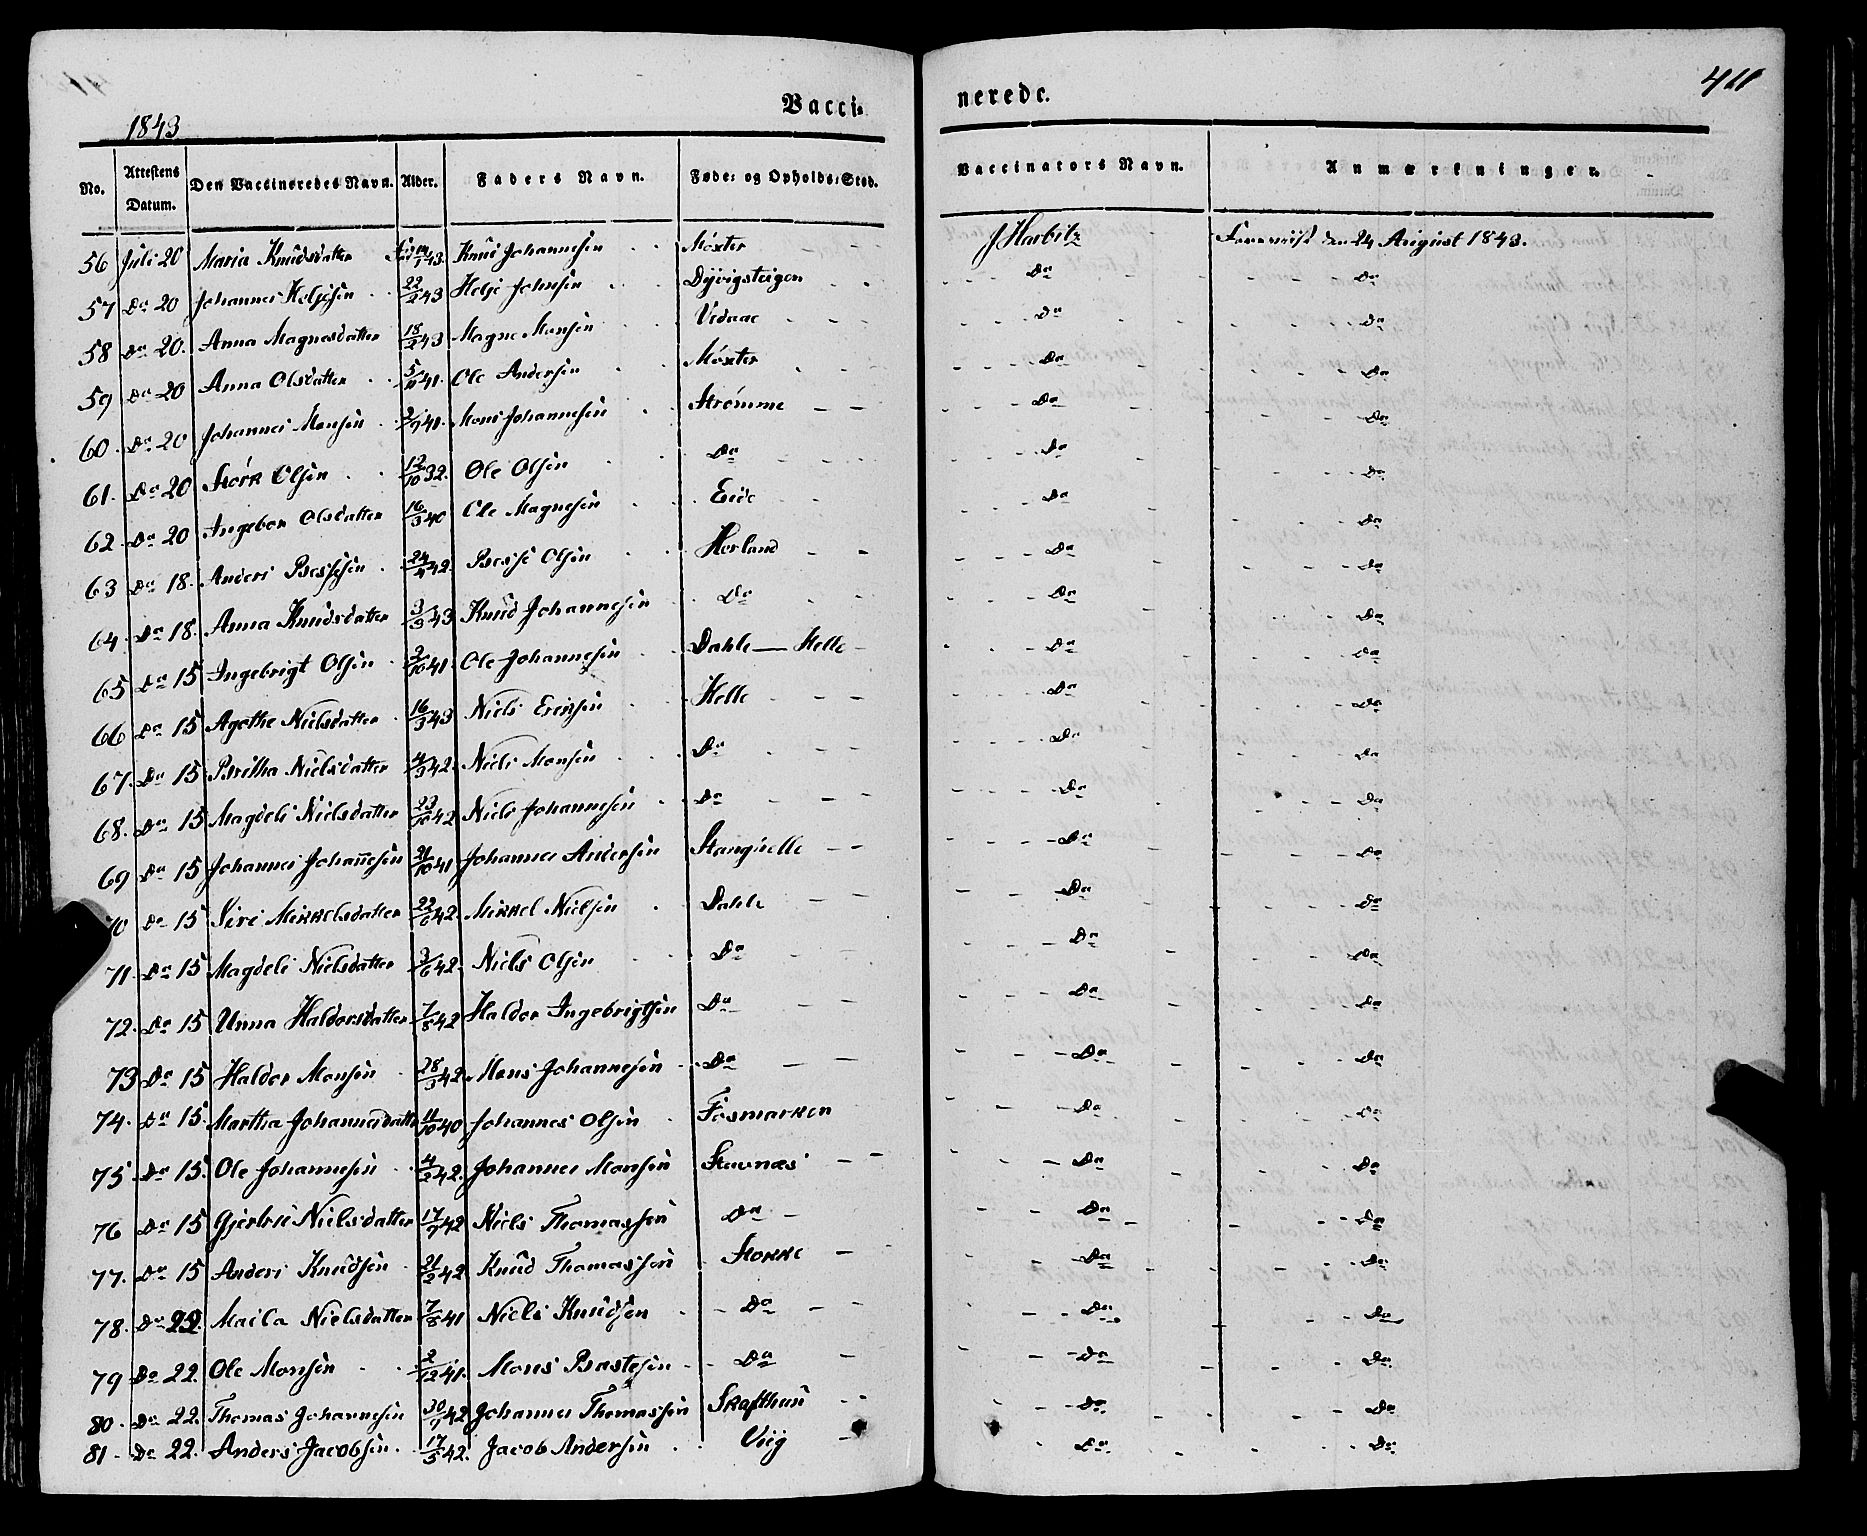 411
Vacci- nerede.
1843
No. Attestens Datum. Den Vaccineredes Navn. Alder. Faders Navn. Føde- og Opholds-Sted. Vaccinators Navn. Anmærkninger.
56 Juli 20 Maria Knudsdatter Knud Johannesen Møxter J Harbitz Foreviist den 24 August 1843.
57 Do 20 Johannes Heljesen 22/2 43 Helje Johnsen Dyvigsteigen Do Do
58 Do 20. Anna Magnesdatter 18/2 43 Magne Monsen Vedaae Do Do
59 Do 20 Anna Olsdatter 5/11 41. Ole Andersen Møxter Do Do
60. Do 20 Johannes Monsen 2/9 41. Mons Johannesen Strømme Do Do
61. Do 20 Størk Olsen 12/10 32. Ole Olsen Do Do Do
62. Do 20 Ingebor Olsdatter 16/3 40 Ole Magnesen Eide Do Do
63 Do 18. Anders Bessesen 24/4 42. Besse Olsen Horland Do Do
64. Do 18. Anna Knudsdatter 3/3 43 Knud Johannesen Do Do Do
65 Do 15 Ingebrigt Olsen 2/10 41. Ole Johannesen Dahle — Helle Do Do
66 Do 15 Agethe Nielsdatter 16/3 43 Niels Ericksen Helle Do Do
67. Do 15 Britha Nielsdatter 4/3 42. Niels Monsen Do Do Do
68. Do 15 Magdeli Nielsdatter 23/10 42 Niels Johannesen Do Do Do
69 Do 15 Johannes Johan̄esen 31/10 41 Johannes Andersen Stangirelle Do Do
70 Do 15 Siri Mikkelsdatter 22/6 42. Mikkel Nielsen Dahle Do Do
71. Do 15 Magdeli Nielsdatter 3/6 42. Niels Olsen Do Do Do
72. Do 15 Unna Haldorsdatter 7/8 42 Haldor Ingebrigtsen Do Do Do
73 Do 15 Haldor Monsen 28/3 42. Mons Johannesen Do Do Do
74. Do 15. Martha Johannesdatter 11/10 40 Johannes Olsen Fosmarken Do Do
75 Do 15. Ole Johannesen 4/2 42. Johannes Monsen Stavnæs Do Do
76 Do 15 Gjertrie Nielsdatter 17/9 42 Niels Thomassen Do Do Do
77. Do 15 Anders Knudsen 21/2 42. Knud Thomassen Stokke Do Do
78. Do 22. Maila Nielsdatter 7/8 41 Niels Knudsen Do Do Do
79 Do 22. Ole Monsen 2/12 41. Mons Brastesen Do Do Do
80. Do 22. Thomas Johannesen 30/9 42 Johannes Thomassen Skafthun Do Do
81. Do 22. Anders Jacobsen 17/5 42. Jacob Andersen Viig Do Do